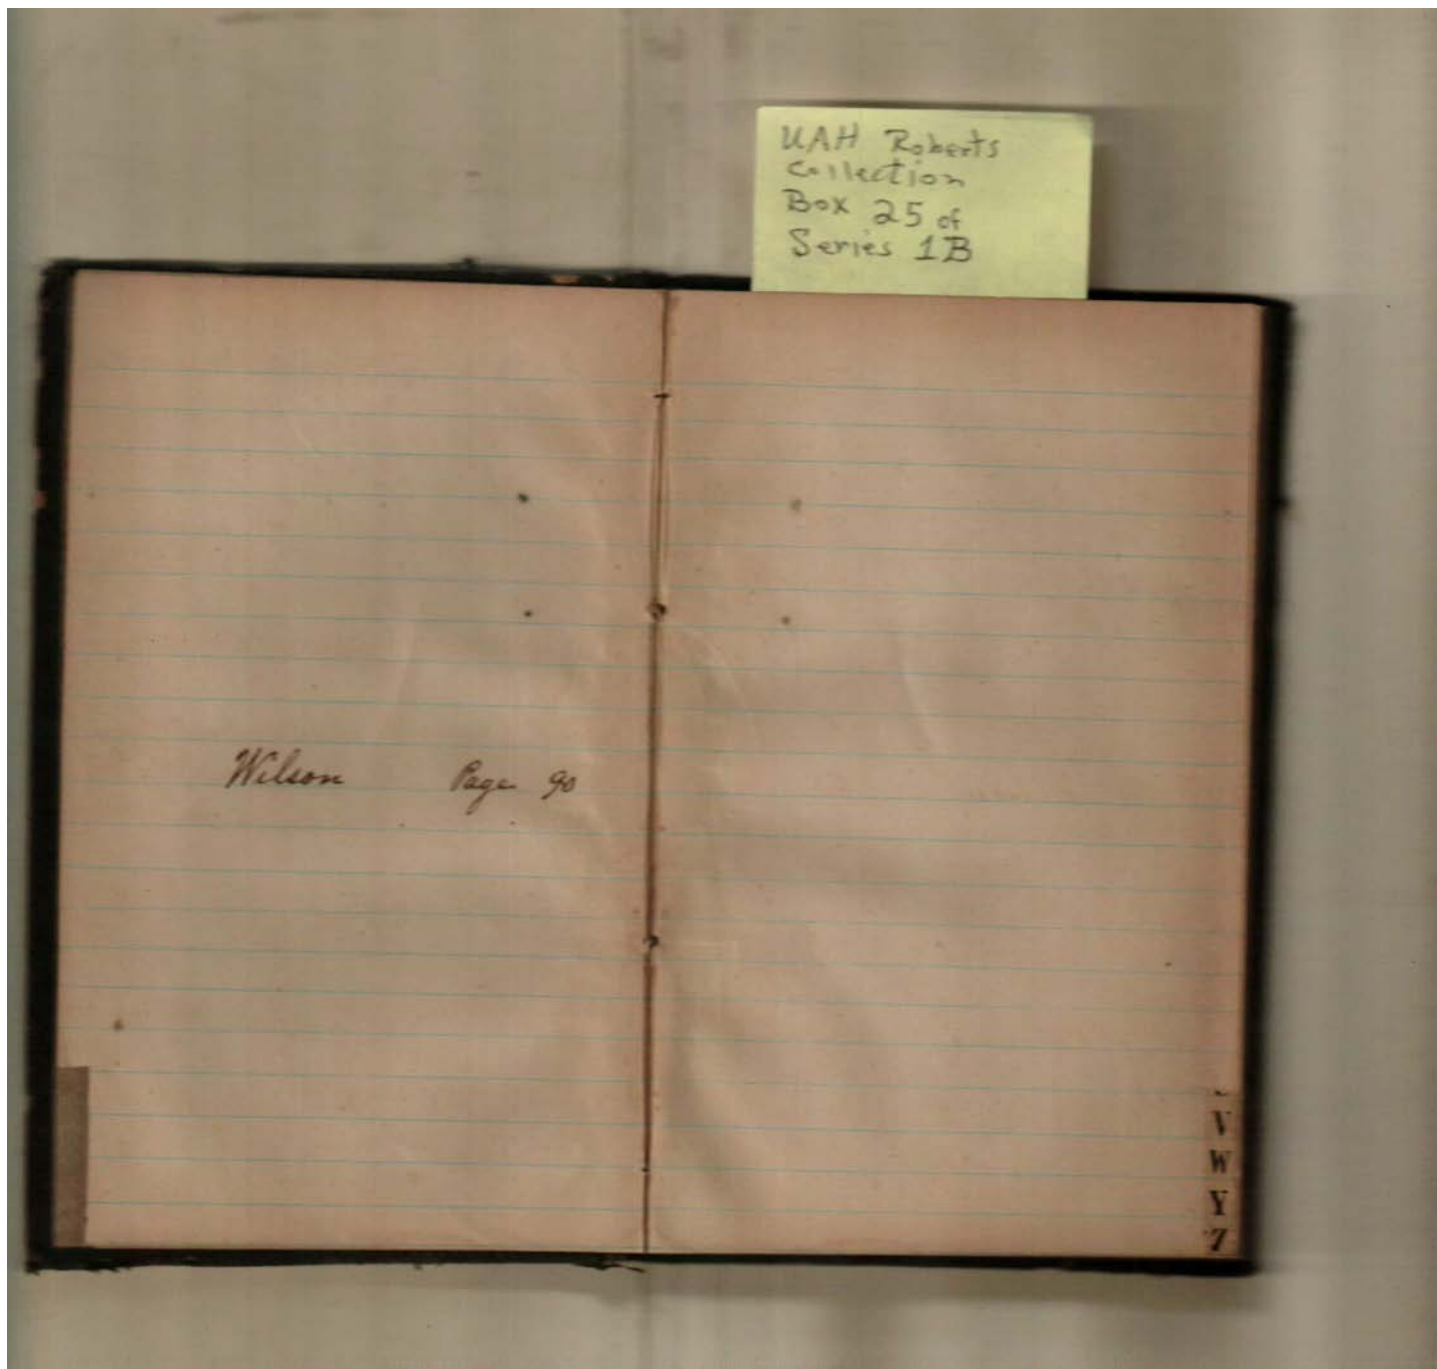 UAH Roberts
Collection
Box 25 of
Series 1B
Wilson Page 90
V
W
Y
Z